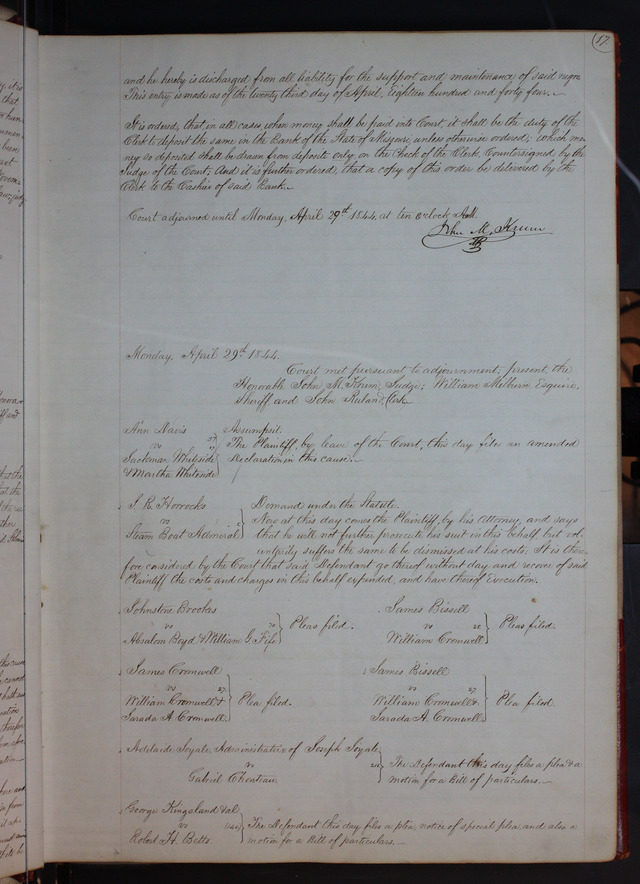 57
and he hereby is discharged from all liability for the support and maintenance of said negro
This entry is made as of the twenty third day of April, Eighteen hundred and forty four.
It is ordered, that in all cases, when money shall be paid into Court, it shall be the duty of the
Clerk to deposit the same in the Bank of the State of Missouri, unless otherwise ordered, which mo-
ney so deposited shall be drawn from deposite only on the Check of the Clerk, Countersigned by the
Judge of the Court, And it is further ordered, that a copy of this order be delivered by the
Clerk to the Cashier of said Bank.
Court adjourned until Monday, April 29th 1844, at ten o'clock A.M.
John M. Krum
Monday, April 29th 1844.
Court met pursuant to adjournment, present, the
Honorable John M. Krum, Judge; William Milburn Esquire,
Sheriff and John Ruland, Clerk.
Ann Davis
vs 27
Whiteside
& Martha Whiteside
Assumpsit.
The Plaintiff, by leave of the Court, this day files an amended
Declaration in this cause.
J. R. Horrocks
vs
Steam Boat Admiral
Demand under the Statute.
Now at this day comes the Plaintiff, by his Attorney, and says
that he will not further prosecute his suit in this behalf but vol-
untarily suffers the same to be dismissed at his costs: It is there-
fore considered by the Court that said Defendant go thereof without day and recover of said
Plaintiff the costs and charges in this behalf expended, and have thereof Execution.
Johnstone Brookes
vs
Absalom Boyd & William G. Fife
Pleas filed.
James Bissell
vs
William Cromwell
Pleas filed.
James Cromwell
vs 27
William Cromwell &
Sarada A. Cromwell
Plea filed.
James Bissell
vs 27
William Cromwell &
Sarada A. Cromwell
Plea filed.
Adelaide Soyale, Administratrix of Joseph Soyale
vs
Gabriel
The Defendant this day files a plea & a
motion for a Bill of particulars.
George Kingsland et al
vs
Robert H. Betts.
The Defendant this day files a plea, notice of special plea, and also a
motion for a Bill of particulars.